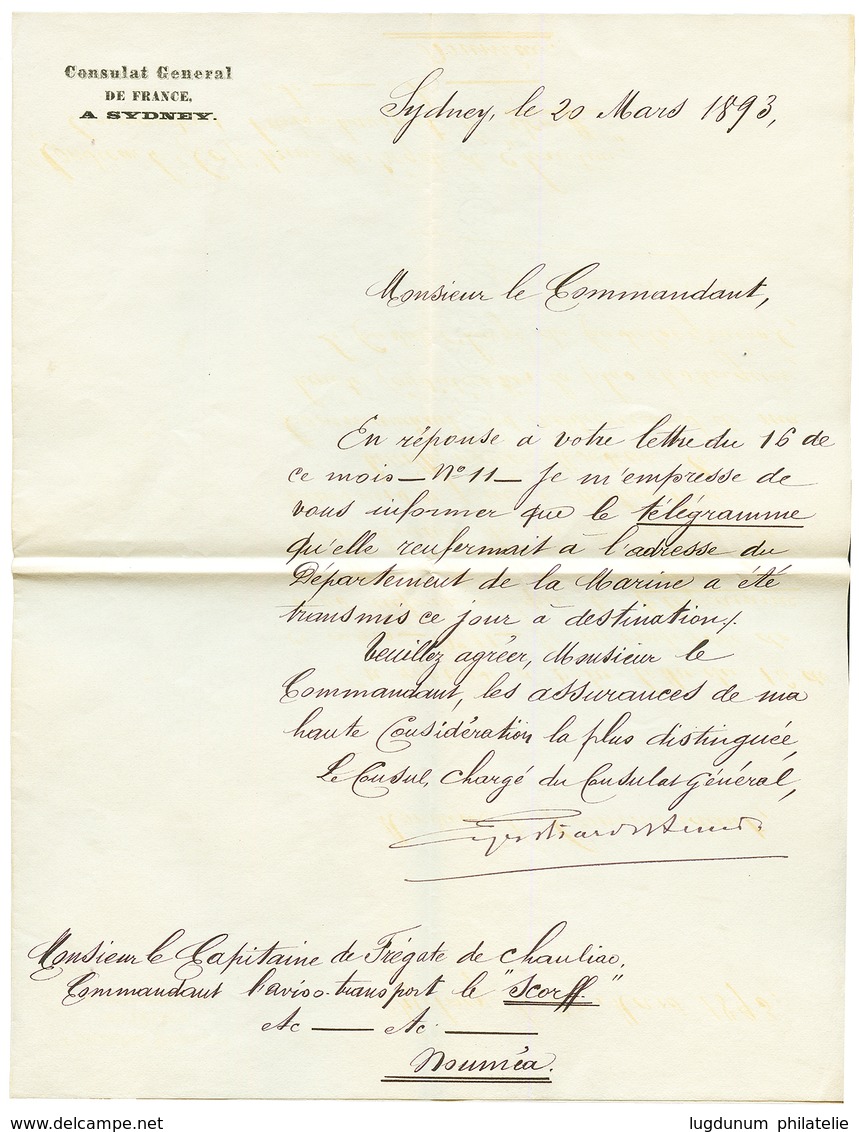 Consulat General
DE FRANCE,
A SYDNEY.
Sydney, le 20 Mars 1893,
Monsieur le Commandant,
En réponse à votre lettre du 16 de
ce mois — No 11 — Je m'empresse de
vous informer que le télégramme
qu'elle renfermait à l'adresse du
Département de la Marine a été
transmis ce jour à destination./.
Veuillez agréer, Monsieur le
Commandant, les assurances de ma
haute Considération la plus distinguée,
Le Consul, chargé du Consulat Général,
Monsieur le Capitaine de Frégate de Chauliac,
Commandant l'aviso-transport le "Scorff."
etc — etc. —
Nouméa.
delcampe.net
lugdunum philatelie